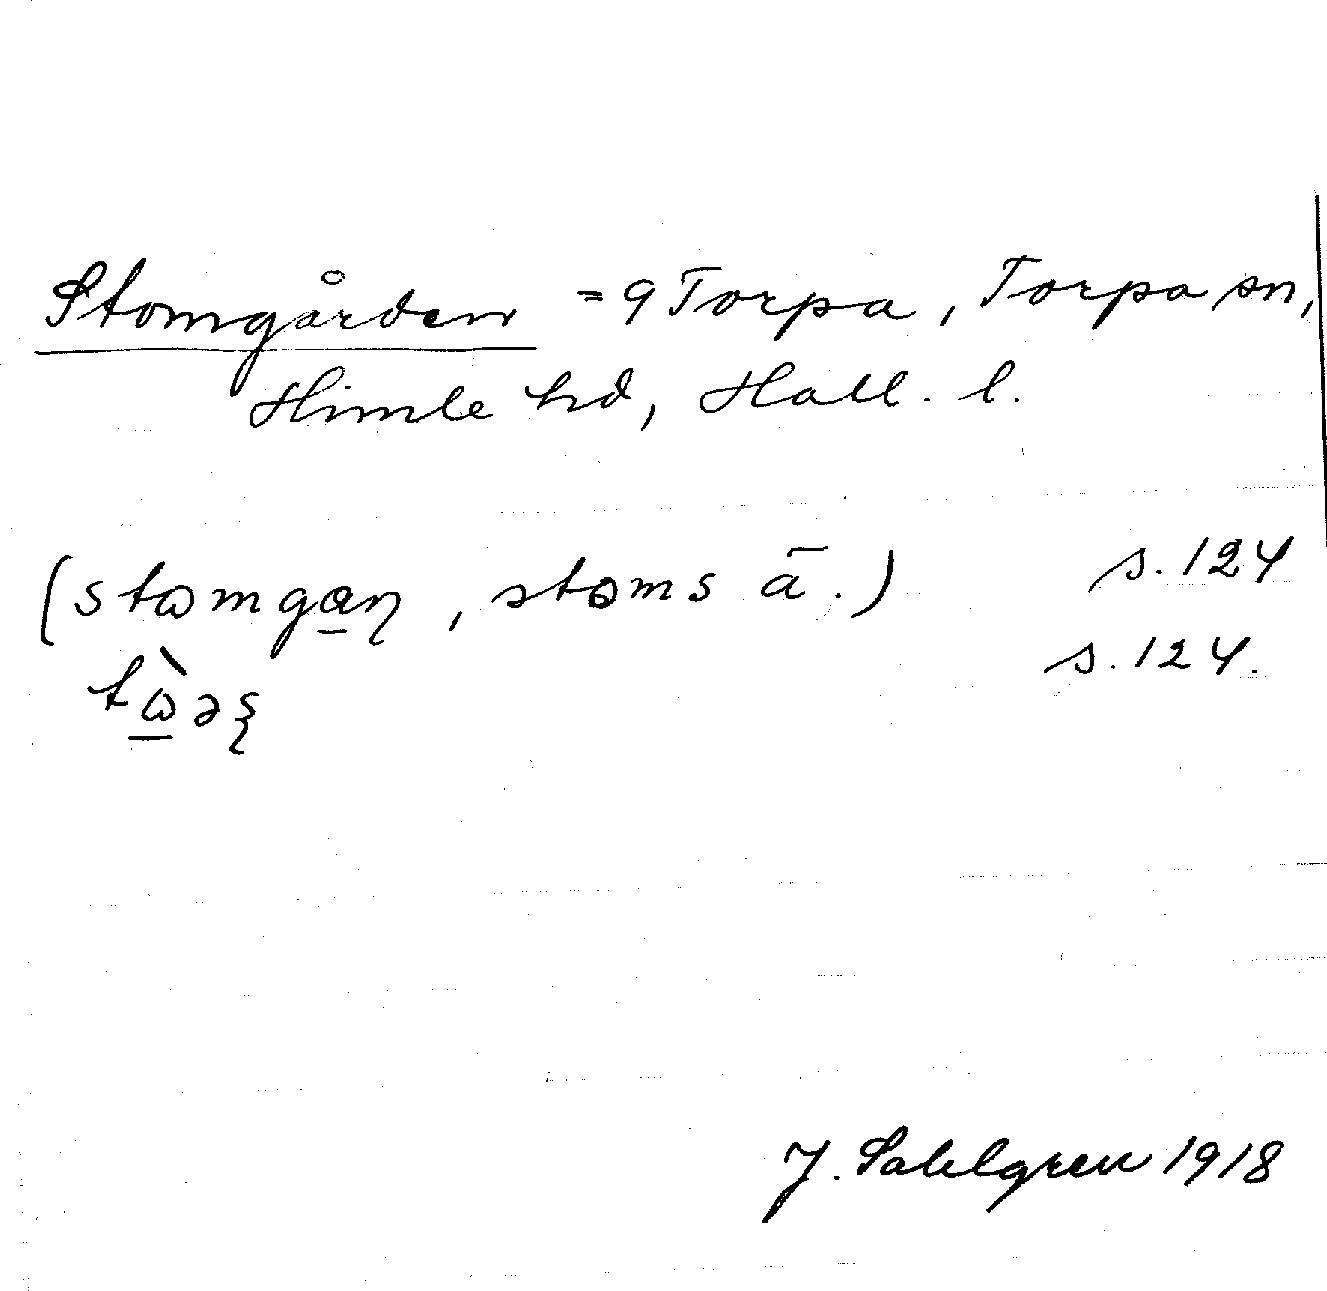 Stomgården = 9 Torpa, Torpa sn,
Himle hd, Hall. l.
(stɷmga̠ꞃ, stɷms ā.) s. 124
tɷ̠̀əʂ s. 124.
J. Sahlgren 1918